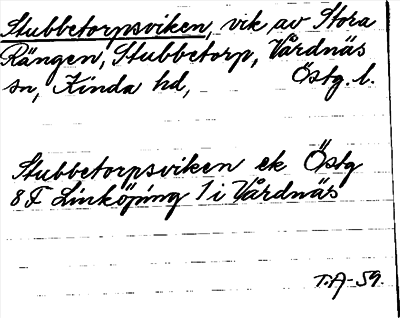 Stubbetorpsviken, vik av Stora
Rängen, Stubbetorp, Vårdnäs
sn, Kinda hd, Östg. l.
Stubbetorpsviken ek Östg
8F Linköping 1 i Vårdnäs
T.A-59.